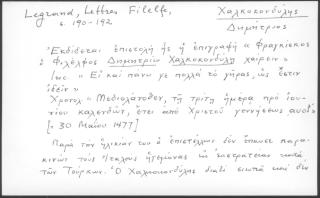 Legrand, Lettres Filelfe,
σ. 190-192
Χαλκοκονδύλης
Δημήτριος
"Εκδίδεται επιστολή ης η επιγραφή "Φραγκίσκος
ο Φιλέλφος Δημητρίω Χαλκοκονδύλη χαίρειν"
Ιως " Ει και πάνυ με πολλά το γήρας, ως έστιν
ιδείν"
Χρονολ " Μεδιολάνοθεν, τη τρίτη ημέρα προ ιου-
νίου καλενδών, έτει από Χριστού γεννήσεως αυοζ"
[= 30 Μαΐου 1477]
Παρά την ηλικίαν του ο επιστέλλων δεν έπαυσε παρα-
κινών τους Ιταλους ηγεμόνας να εκστρατεύσ κατά
των Τούρκων. Ο Χαλκοκονδύλης διατί σιωπά και δεν